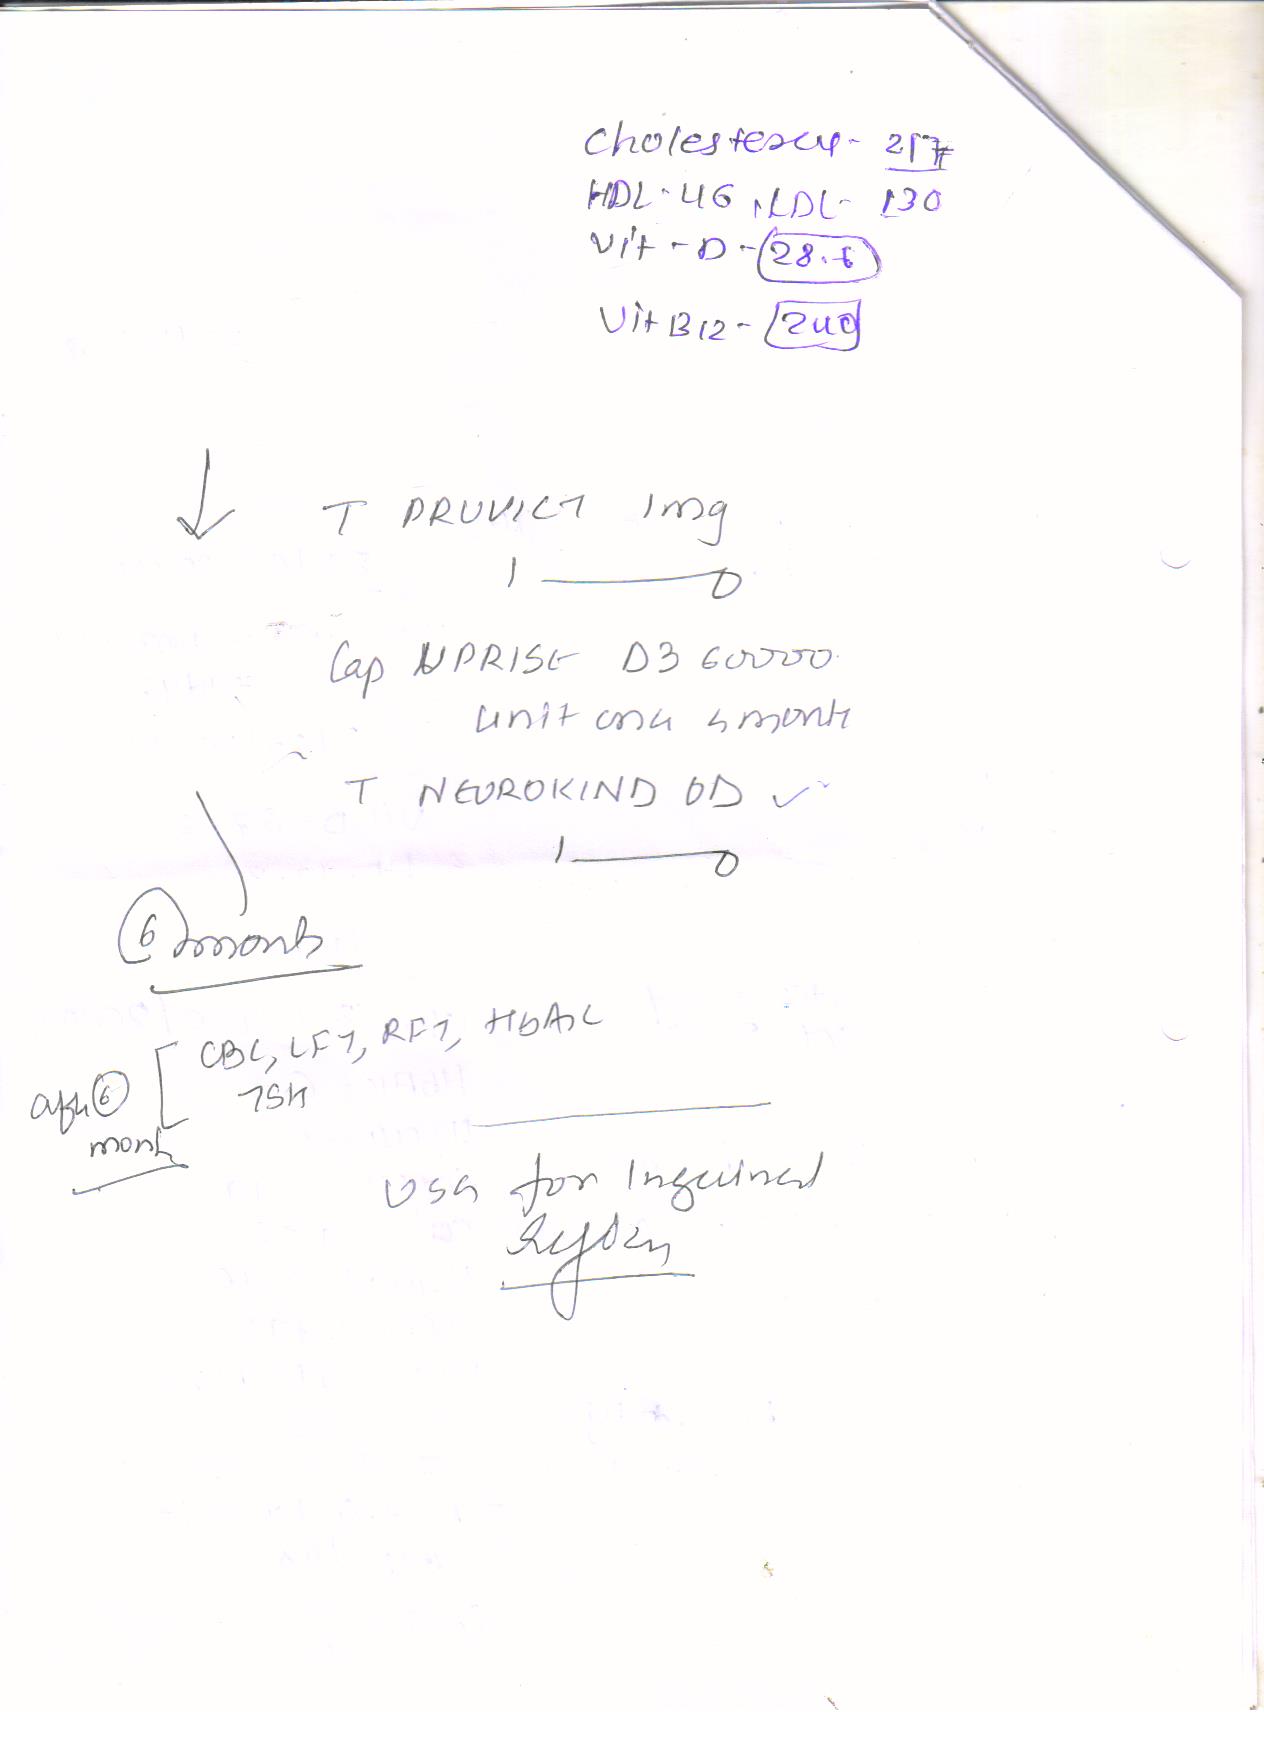 Cholesterol - 217
HDL - 46, LDL - 130
Vit - D - 28.6
Vit B12 - 240
T PRUVICT 1mg
1 ——— 0
Cap UPRISE D3 60000
unit once a month
T NEUROKIND OD ✓
1 ——— 0
6 month
CBC, LFT, RFT, HbA1c
TSH
after 6
month
USG for Inguinal
Region